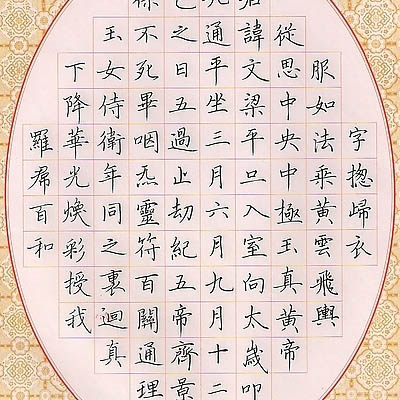 字揔歸衣
服如法乘黄雲飛輿
從思中央中極玉真黄帝
諱文梁平口入室向太歲叩
通平坐三月六月九月十二
之日五過止劫紀五帝齊景
不死畢咽炁靈符百關通理
玉女侍衛年同之裏迴真
下降華光煥彩授我
羅帬百和